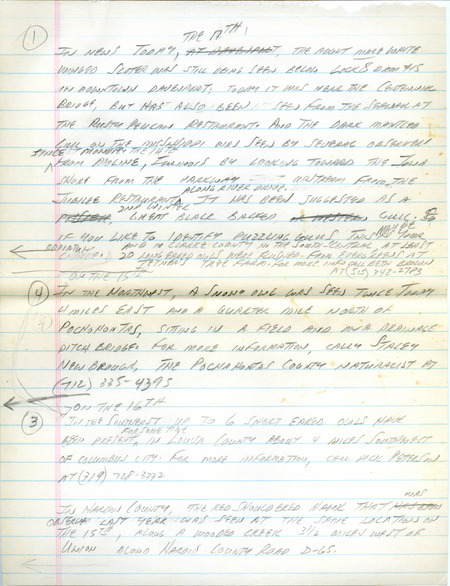 THE 17TH,
① IN NEWS TODAY, THE ADULT MALE WHITE
WINGED SCOTER WAS STILL BEING SEEN BELOW LOCK & DAM #15
IN DOWNTOWN DAVENPORT. TODAY IT WAS NEAR THE CENTENNIAL
BRIDGE, BUT HAS ALSO BEEN SEEN FROM THE SEAWALL AT
THE RUSTY PELICAN RESTAURANT. AND THE DARK MANTLED
GULL ON THE MISSISSIPPI WAS SEEN BY SEVERAL OBSERVERS
SINCE MONDAY THE
FROM MOLINE, ILLINOIS BY LOOKING TOWARD THE IOWA
SHORE FROM THE PARKWAY UPSTREAM FROM THE
ALONG RIVER DRIVE.
JUBILEE RESTAURANT. IT HAS BEEN SUGGESTED AS A
2ND WINTER
GREAT BLACK BACKED GULL. SO
IF YOU LIKE TO IDENTIFY PUZZLING GULLS, THIS YOUR
AND IN CLARKE COUNTY IN THE SOUTH-CENTRAL, AT LEAST
20 LONG EARED OWLS WERE FLUSHED FROM EVERGREENS AT
TREE FARM. FOR MORE INFO CALL BETH BROWN
ON THE 15TH AT (515) 342-2783
④ IN THE NORTHWEST, A SNOWY OWL WAS SEEN TWICE TODAY
4 MILES EAST AND A QUARTER MILE NORTH OF
POCAHONTAS, SITTING IN A FIELD AND ON A DRAINAGE
DITCH BRIDGE. FOR MORE INFORMATION, CALL STACEY
NEWBROUGH, THE POCAHONTAS COUNTY NATURALIST AT
(712) 335-4395
ON THE 16TH
③ IN THE SOUTHEAST UP TO 6 SHORT EARED OWLS HAVE
FOR SOME TIME
BEEN PRESENT, IN LOUISA COUNTY ABOUT 4 MILES SOUTHWEST
OF COLUMBUS CITY. FOR MORE INFORMATION, CALL PETERSON
AT (319) 728-3232
IN HARDIN COUNTY, THE RED SHOULDERED HAWK THAT WAS
OBSERVED LAST YEAR WAS SEEN AT THE SAME LOCATION ON
THE 15TH, ALONG A WOODED CREEK 3 1/2 MILES WEST OF
UNION ALONG HARDIN COUNTY ROAD D-65.